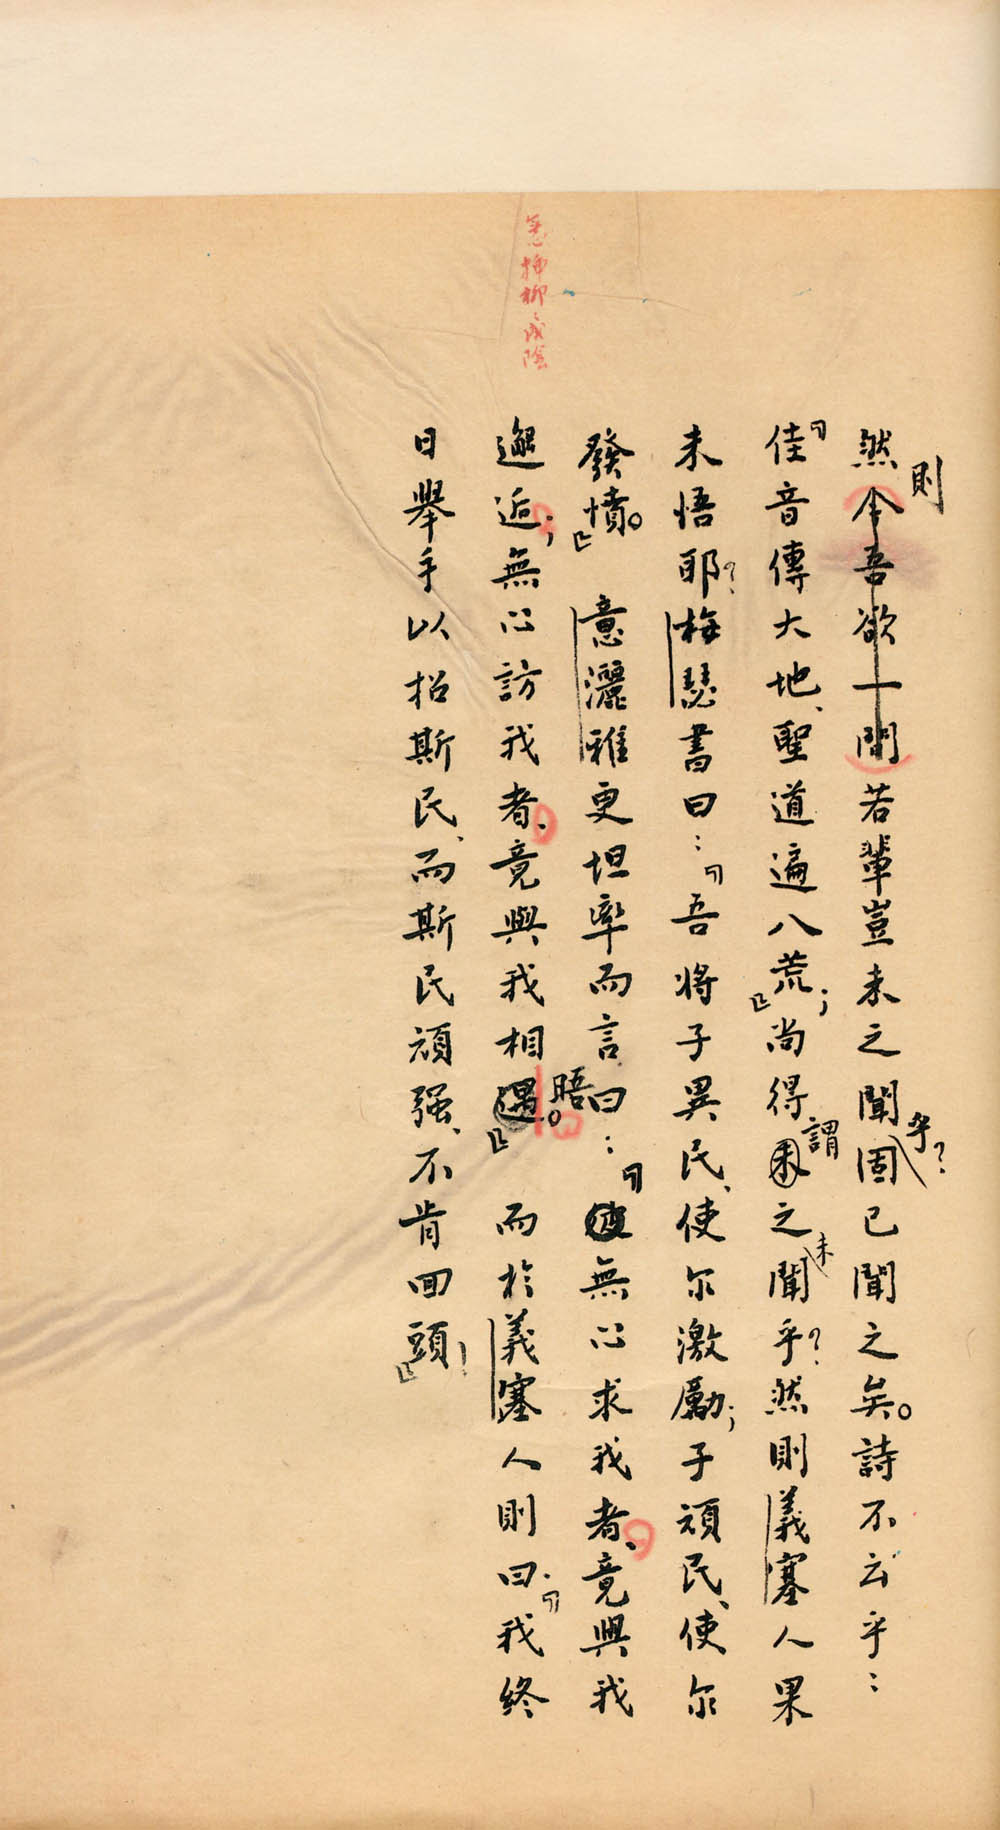 然則今吾欲一問若輩豈未之聞乎?固已聞之矣。詩不云乎:
「佳音傳大地、聖道遍八荒;」尚得謂之未聞乎?然則義塞人果
未悟耶?梅瑟書曰:「吾將子異民、使尔激勵;子頑民、使尔
發憤。」意灑雅更坦率而言曰:「無心求我者、竟與我
邂逅;無心訪我者、竟與我相晤。」而於義塞人則曰:「我終
日舉手以招斯民、而斯民頑强、不肯回頭!」